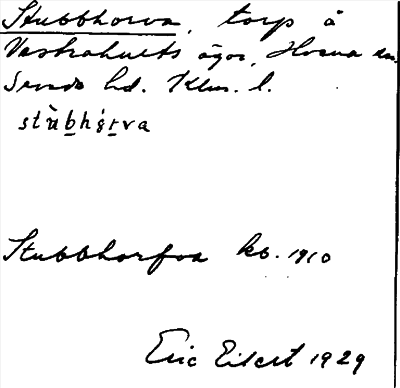 Stubbhorva, torp å
Västrahults ägor, Horna sn.
Sunds hd. Klm. l.
stùbhó̱rva
Stubbhorfva kb. 1910
Eric Eilert 1929